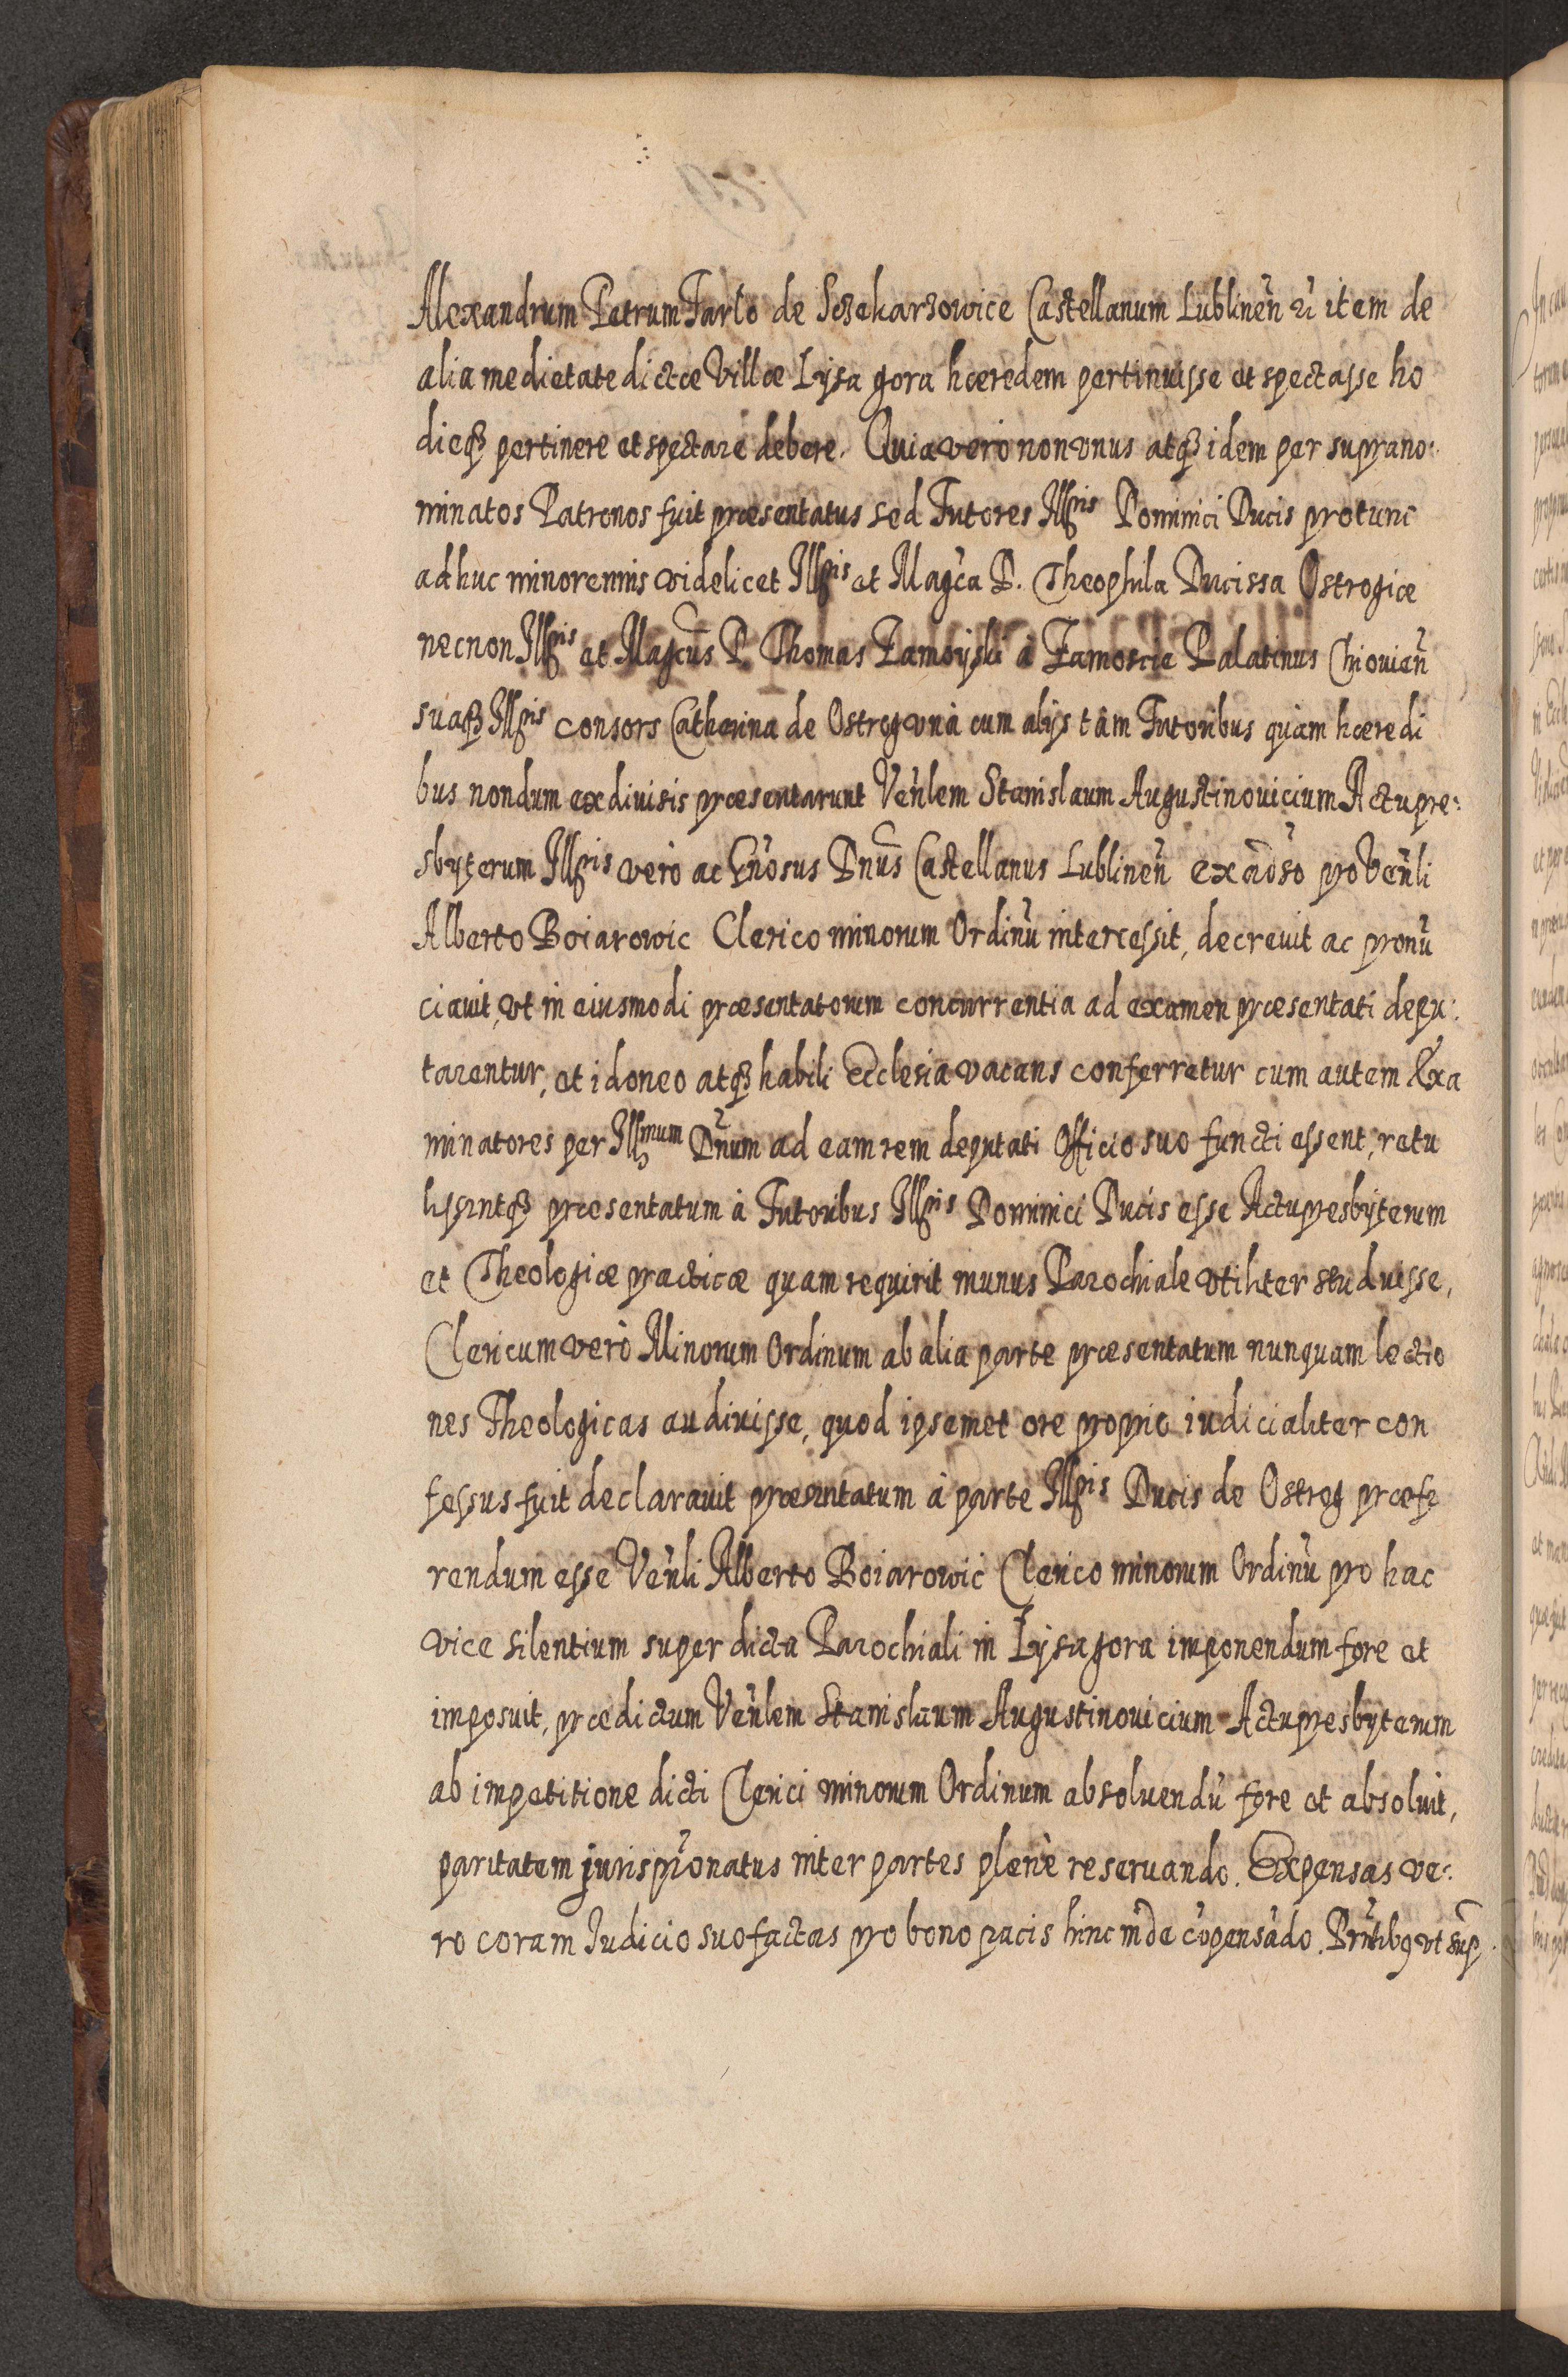 Alexandrum Petrum Tarlo de Sczekarzowice Castellanum Lublineñ ur̃ item de
alia medietate dictæ Villæ Lysa gora hæredem pertinuisse et spectasse ho
dieq₃ pertinere et spectare debere. Quia vero non vnus atq₃ idem per suprano:
minatos Patronos fuit præsentatus sed Tutores Illris Dominici Ducis protunc
adhuc minorennis videlicet Illris et Magca D. Theophila Ducissa Ostrogiæ
necnon Illris et Magcus D. Thomas Zamoyski à Zamoscie Palatinus Chiouieñ
suaq₃ Illris consors Catherina de Ostrog vnà cum alijs tàm Tutoribus quàm hæredi
bus nondum ex diuisis præsentarunt Venlem Stanislaum Augustinouicium Actupre:
sbyterum Illris verò ac Gnosus Dnus Castellanus Lublineñ ex aduerso pro Venli
Alberto Boiarowic Clerico minorum Ordinũ intercessit, decreuit ac pronũ
ciauit, vt in eiusmodi præsentatorum concurrentia ad examen præsentati depu:
tarentur, et idoneo atq₃ habili Ecclesia vacans conferretur cum autem Exa
minatores per Illmum Dnum ad eam rem deputati Officio suo functi essent, retu
lissentq₃ præsentatum à Tutoribus Illris Dominici Ducis esse Actupresbyterum
et Theologiæ practicæ quam requirit munus Parochiale vtiliter studuisse,
Clericum verò Minorum Ordinum ab alia parte præsentatum nunquam lectio
nes Theologicas audiuisse, quod ipsemet ore proprio iudicialiter con
fessus fuit declarauit præsentatum à parte Illris Ducis de Ostrog præfe
rendum esse Venli Alberto Boiarowic Clerico minorum Ordinũ pro hac
vice silentium super dicta Parochiali in Lysagora imponendum fore et
imposuit, prædictum Venlem Stanislaum Augustinouicium Actupresbyterum
ab impetitione dicti Clerici minorum Ordinum absoluendũ fore et absoluit,
paritatem juris pr̃onatus inter partes plenè reseruando. Expensas ve:
ro coram Iudicio suo factas pro bono pacis hinc inde cõpensãdo. Prñtibq vt sup̃